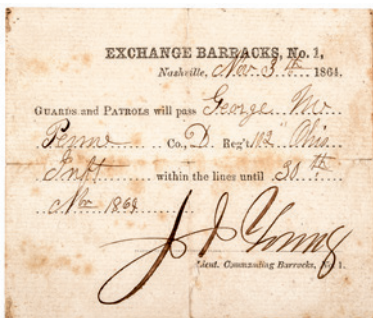 EXCHANGE BARRACKS, No. 1,
Nashville, Nov 3th 1864.
GUARDS and PATROLS will pass George Mc
Co. D Reg't 102" Ohio
Inft within the lines until 30th
Nov 1864
J J Young
Lieut. Commanding Barracks, No 1.